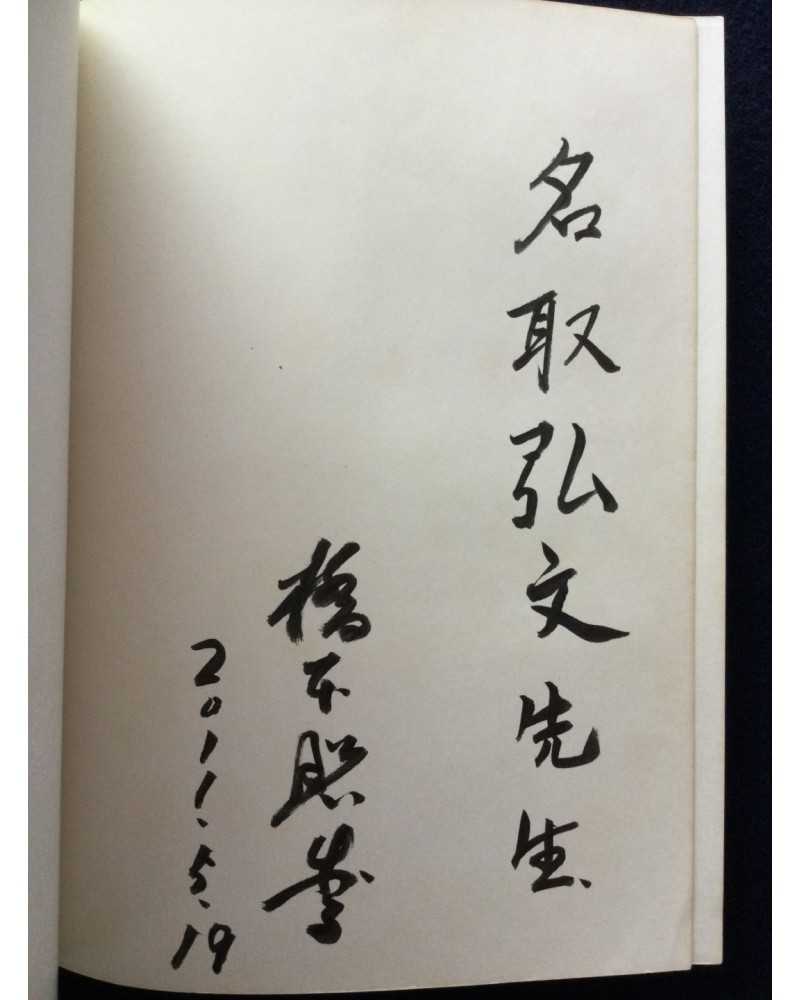 名取弘文先生
橋本照嵩
2011.5.19